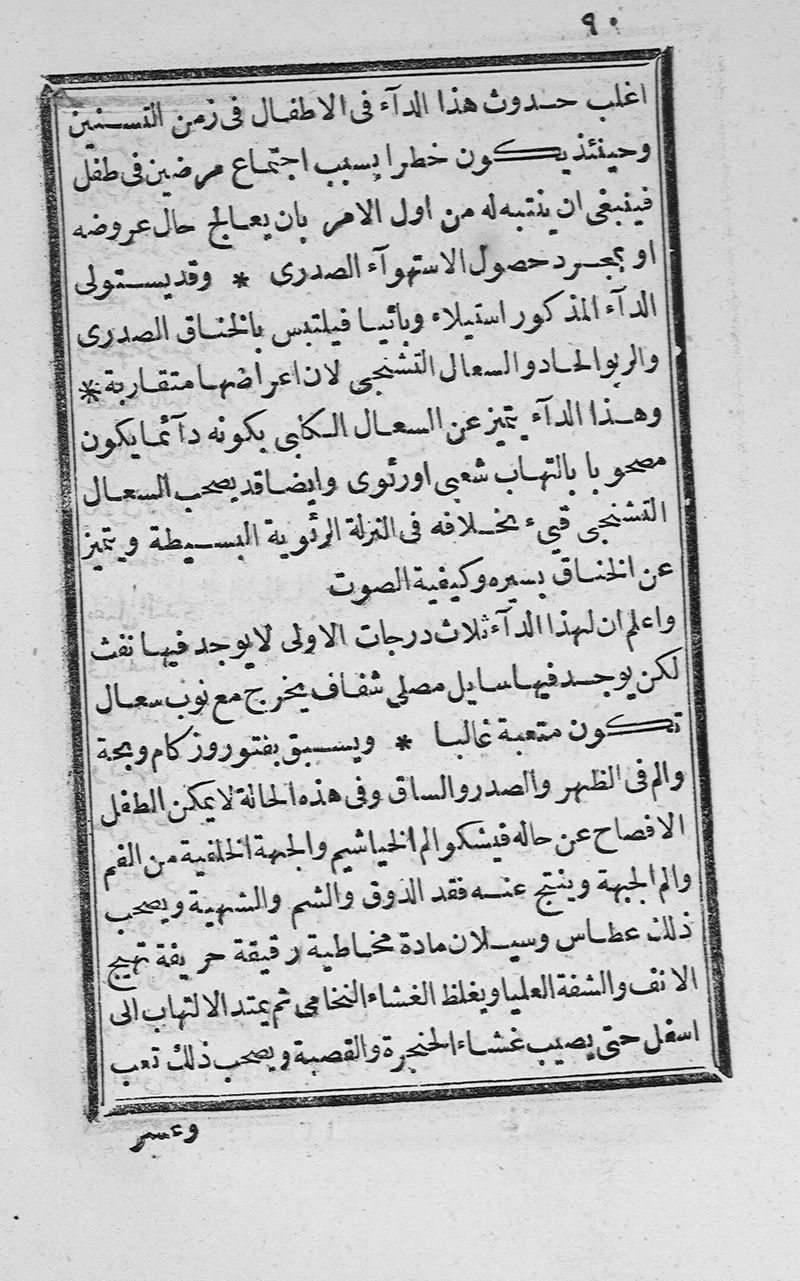 ٩٠
اغلب حدوث هذا الدآء فى الاطفال فى زمن التسنين
وحينئذ يكون خطرا بسبب اجتماع مرضين فى طفل
فينبغى ان ينتبه له من اول الامر بان يعالج حال عروضه
او بمجرد حصول الاستهوآء الصدرى * وقد يستولى
الدآء المذكور استيلاء وبائيا فيلتبس بالخناق الصدرى
والربو الحاد والسعال التشنجى لان اعراضها متقاربة *
وهذا الدآء يتميز عن السعال الكابى بكونه دآئما يكون
مصحوبا بالتهاب شعبى اورئوى وايضا قد يصحب السعال
التشنجى قيء بخلافه فى النزلة الرئوية البسيطة ويتميز
عن الخناق بسيره وكيفية الصوت
واعلم ان لهذا الدآء ثلاث درجات الاولى لا يوجد فيها نفث
لكن يوجد فيها سايل مصلى شفاف يخرج مع نوب سعال
تكون متعبة غالبا * ويسبق بفتور وزكام وبحة
والم فى الظهر والصدر والساق وفى هذه الحالة لا يمكن الطفل
الافصاح عن حاله فيشكو الم الخياشيم والجهة الخلفية من الفم
والم الجبهة وينتج عنه فقد الذوق والشم والشهية ويصحب
ذلك عطاس وسيلان مادة مخاطية رقيقة حريفة تهيج
الانف والشفة العليا ويغلظ الغشاء النخامى ثم يمتد الالتهاب الى
اسفل حتى يصيب غشاء الحنجرة والقصبة ويصحب ذلك تعب
وعسر